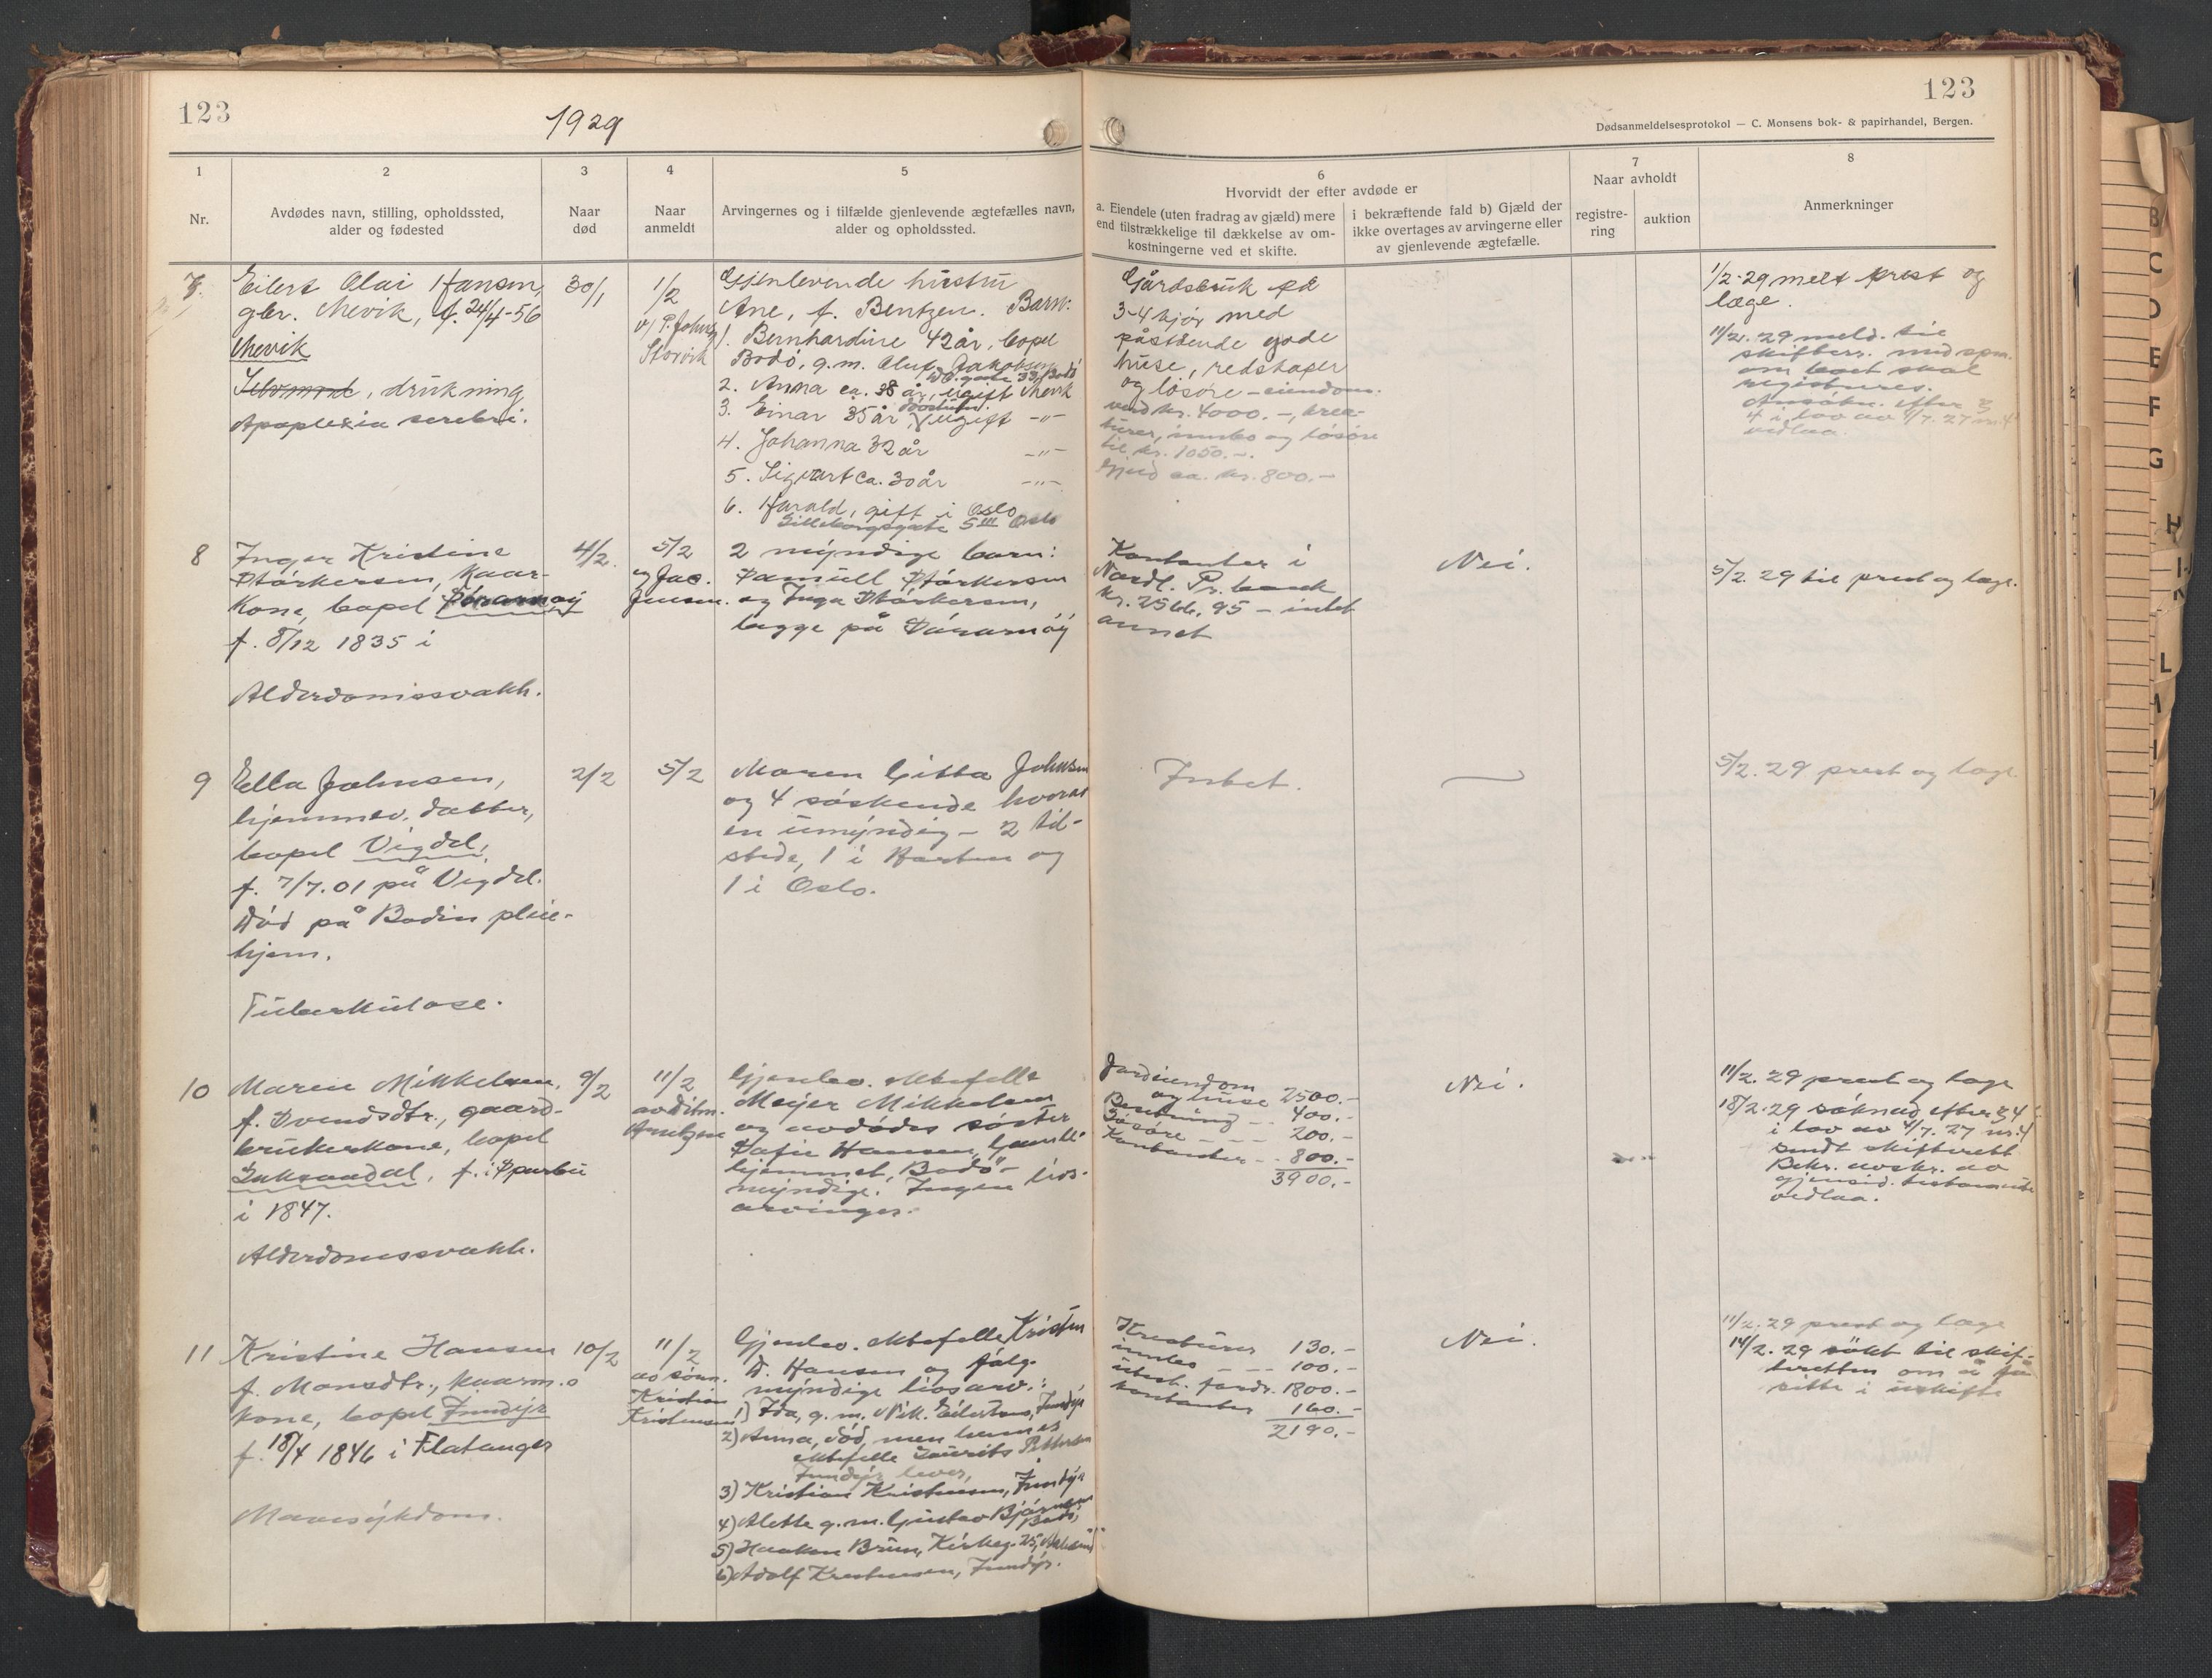 123
1929
123
Dødsanmeldelsesprotokol — C. Monsens bok- & papirhandel, Bergen.
1
Nr.
2
Avdødes navn, stilling, opholdssted,
alder og fødested
3
Naar
død
4
Naar
anmeldt
5
Arvingernes og i tilfælde gjenlevende ægtefælles navn,
alder og opholdssted.
6
Hvorvidt der efter avdøde er
a. Eiendele (uten fradrag av gjæld) mere
end tilstrækkelige til dækkelse av om-
kostningerne ved et skifte.
i bekræftende fald b) Gjæld der
ikke overtages av arvingerne eller
av gjenlevende ægtefælle.
7
Naar avholdt
registre-
ring
auktion
8
Anmerkninger
7.
Eilert Olai Hansen,
gbr. Mevik, f. 24/4-56
Mevik
drukning
Apoplexia serebri.
30/1
1/2
v/ P. Johns
Storvik
Gjenlevende hustru
Ane, f. Bentzen. Barn:
1. Bernhardine 42 år, bopel
Bodö, g.m. Oluf Jakobsen
2. Anna ca. 38 år, ugift Mevik
3. Einar 35 år, ugift -"-
4. Johanna 32 år -"-
5. Sigvart ca. 30 år -"-
6. Harald, gift i Oslo
5 III Oslo
Gårdsbruk på
3-4 kjör med
påstående gode
huse, redskaper
og lösöre – eiendom.
verd kr. 4000.-, krea-
turer, innbo og lösöre
til kr. 1050.-.
Gjeld ca. kr. 800.-
1/2-29 melt prest og
læge.
11/2. 29 meld. til
skifter. med spm.
om boet skal
registreres.
Ansökn. efter §
4 i lov av 4/7. 27 nr. 4
vedlaa.
8
Inger Kristine
Störkersen, kaar-
kone, bopel
f. 8/12 1835 i
Alderdomssvakh.
4/2.
5/2
og Jac.
Jensen.
2 myndige barn:
Samuell Störkersen
og Inga Störkersen,
begge på
Kontanter i
Nordl. Pr. bank
kr. 2566,95 – intet
annet
Nei.
5/2. 29 til prest og læge.
9
Ella Johnsen,
hjemmev. datter,
bopel Vigdel,
f. 7/7.01 på Vigdel.
Död på Bodin pleie-
hjem.
Tuberkulose.
2/2
5/2
Maren Gitta Johnsen
og 4 söskende hvorav
en umyndig – 2 til-
stede, 1 i Horten og
1 i Oslo.
Intet.
5/2. 29 prest og læge.
10
Maren Mikkelsen,
f. Svendsdtr., gaard-
brukerkone, bopel
f. i Sparbu
i 1847.
Alderdomssvakh.
9/2
11/2
Arntzen
Gjenlev. ektefelle
Meyer Mikkelsen
og avdödes söster
Hansen, Gamle-
hjemmet, Bodö –
myndige. Ingen livs-
arvinger.
Jordeiendom
og huse 2500.-
Besetning -- 400.-
Lösöre --- 200.-
Kontanter -- 800.-
3900.-
Nei.
11/2. 29 prest og læge
18/2. 29 söknad efter § 4
i lov av 4/7. 27 nr. 4
sendt skifterett
Bekr. avskr. av
gjensid. testamente
vedlaa.
11
Kristine Hansen
f. Monsdtr., kaarm.
kone, bopel Fundejr
f. 18/4 1846 i Flatanger
Mavesykdom.
10/2
11/2
av sönn.
Kristian
Kristensen
Gjenlev. ektefelle Kristen
D. Hansen og fölg.
myndige livsarv.:
1) Ida, g.m. Nik. Eilertsen,
2) Anna, död, men hennes
ektefelle Laurits Pettersen
lever,
3) Kristian Kristensen,
4) Alette g.m. Gustav Björnsen
Bodö,
5) Haakon Bruun, Kirkeg. 25,
6) Adolf Kristensen,
Kreaturer 130.-
innbo --- 100.-
utest. fordr. 1800.-
kontanter 160.-
2190.-
Nei.
11/2. 29 prest og læge
14/2. 29 sökt til skif-
teretten om å få
sitte i uskifte
B
C
D
E
F
G
H
L